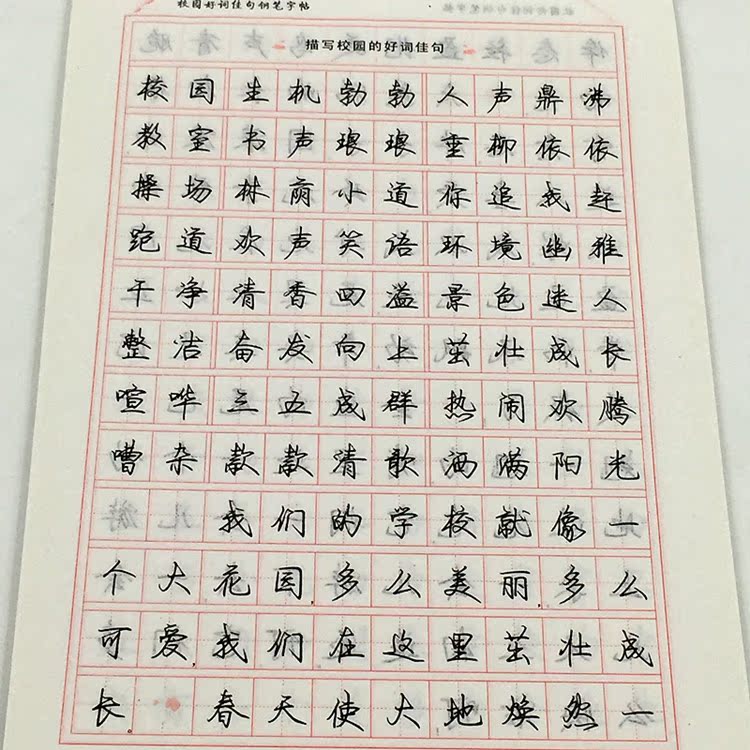 校园好词佳句钢笔字帖
描写校园的好词佳句
校园生机勃勃人声鼎沸
教室书声琅琅垂柳依依
操场林荫小道你追我赶
跑道欢声笑语环境幽雅
干净清香四溢景色迷人
整洁奋发向上茁壮成长
喧哗三五成群热闹欢腾
嘈杂款款清歌洒满阳光
我们的学校就像一
个大花园多么美丽多么
可爱我们在这里茁壮成
长 春天使大地焕然一